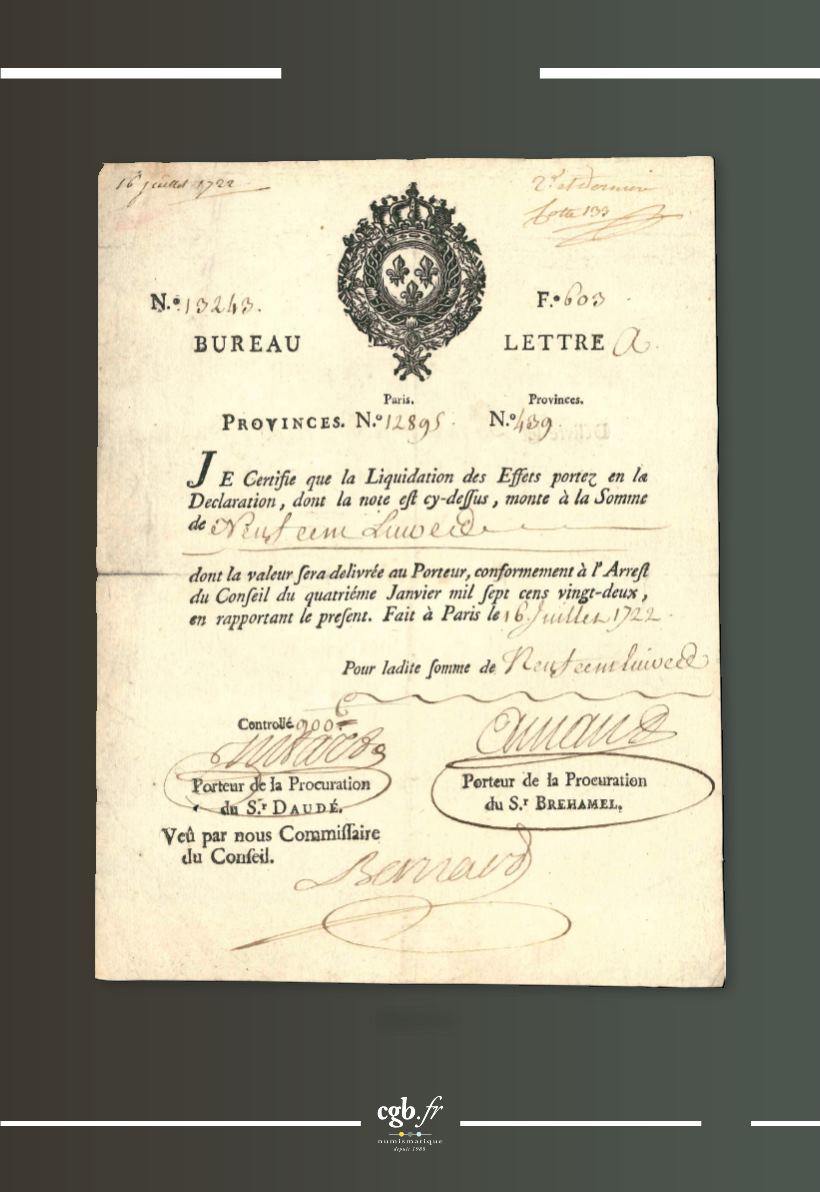 16 juillet 1722
2.e et dernier
Cotte 133
N.º 13243.
F.º 603
BUREAU
LETTRE A
Paris.
Provinces.
PROVINCES. N.º 12895. N.º 439
JE Certifie que la Liquidation des Effets portez en la
Declaration, dont la note est cy-dessus, monte à la Somme
de Neuf cent Livres
dont la valeur sera delivrée au Porteur, conformement à l'Arrest
du Conseil du quatriéme Janvier mil sept cens vingt-deux,
en rapportant le present. Fait à Paris le 16 Juillet 1722
Pour ladite somme de Neuf cent livres
Controllé 900
Porteur de la Procuration
du S.r DAUDÉ.
Porteur de la Procuration
du S.r BREHAMEL.
Veû par nous Commissaire
du Conseil.
Bernard
cgb.fr
numismatique
depuis 1988